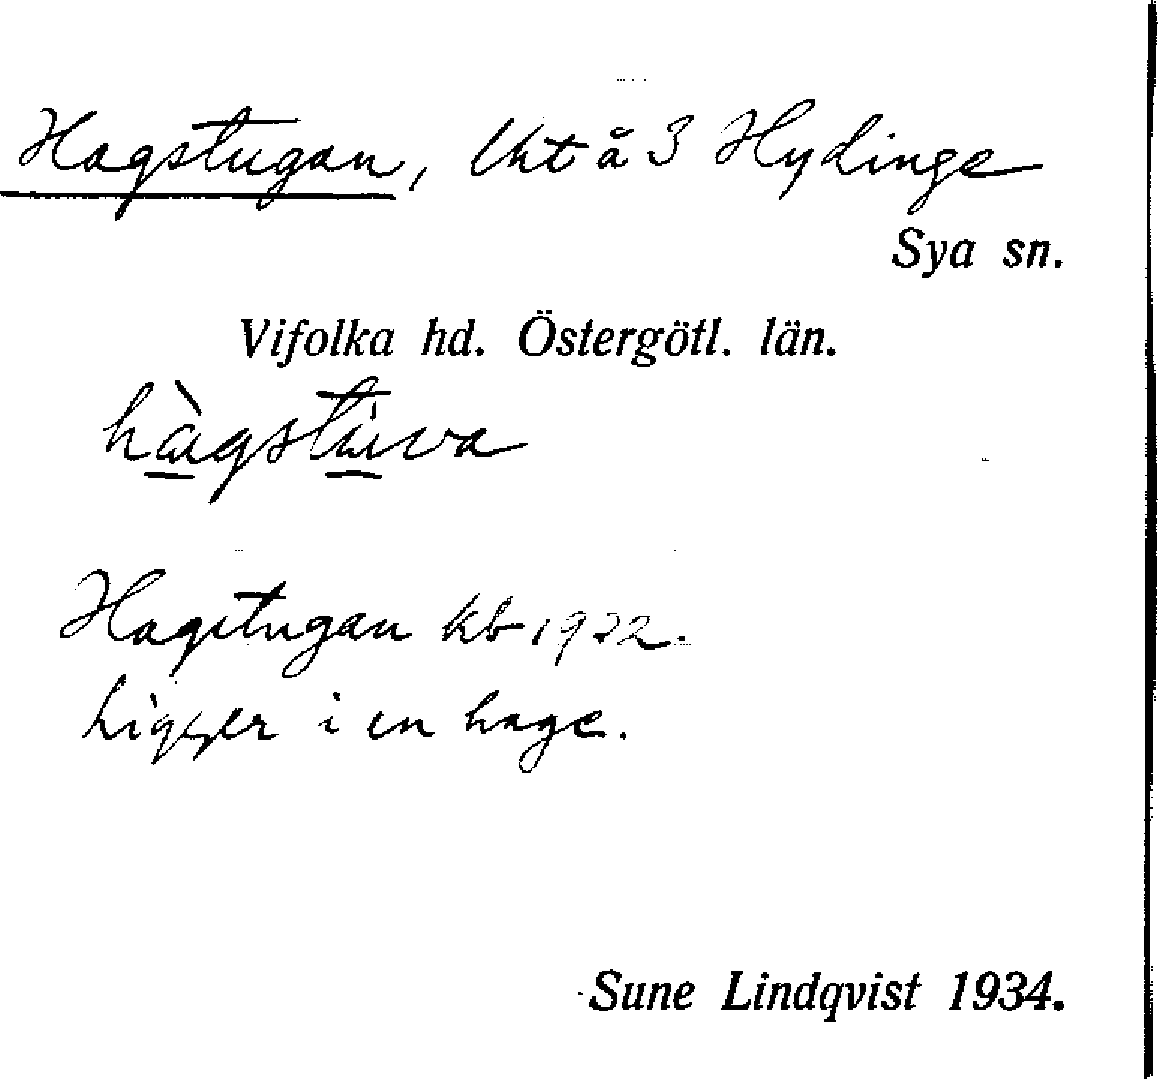 Hagstugan, lht å 3 Hydinge
Sya sn.
Vifolka hd. Östergötl. län.
hàgstùva
Hagstugan kb 1922.
Ligger i en hage.
Sune Lindqvist 1934.